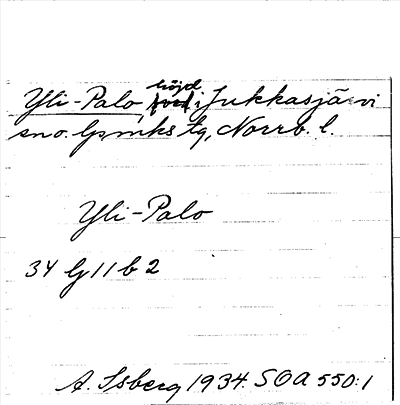 höjd
Yli-Palo, i Jukkasjärvi
sno. Lpmks tg, Norrb. l.
Yli-Palo
34 G 11 b 2
A. Isberg 1934. SOA 550:1